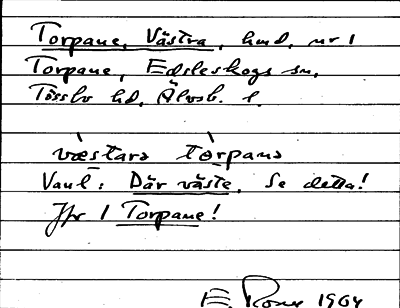 Torpane, Västra, hmd, nr 1
Torpane, Edsleskogs sn,
Tössbo hd, Älvsb. l.
væ̀stara tò̀rpana
Vanl: Där väste. Se detta!
Jfr 1 Torpane!
E. 1964